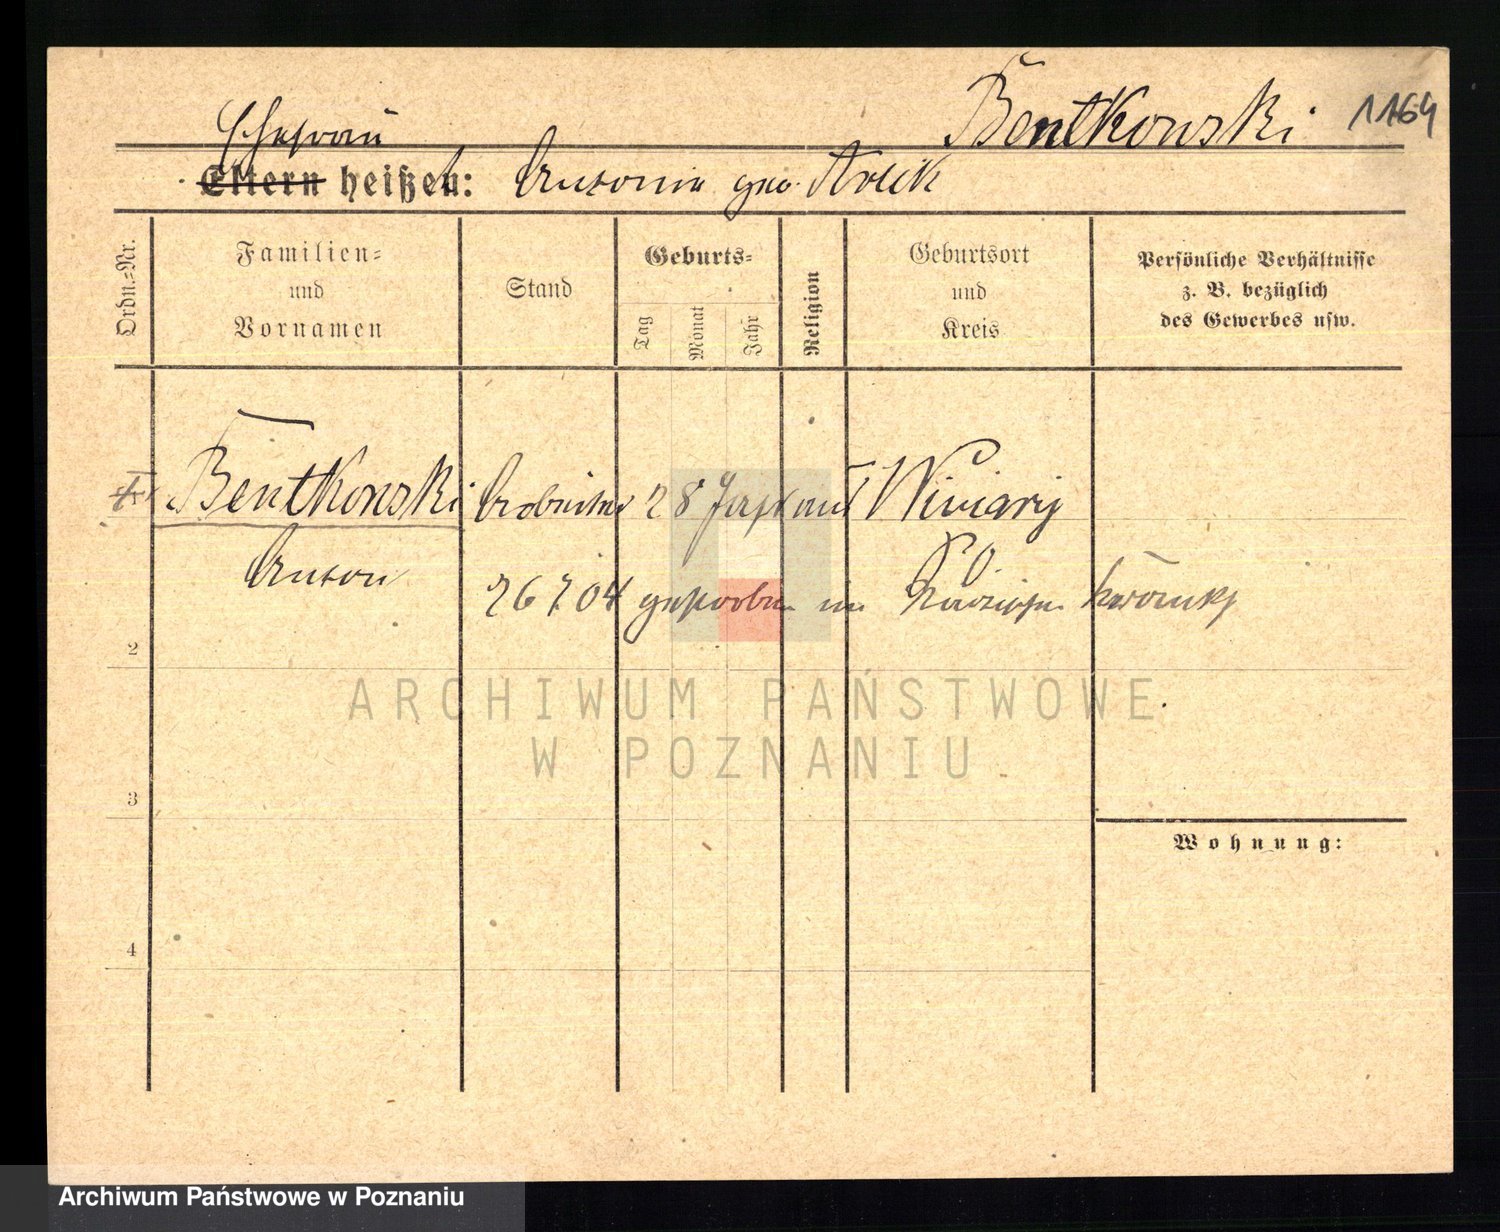 Bentkowski 1164
Ehefrau
Eltern heißen: Antonie geb. Rolik
Ordn.-Nr.
Familien-
und
Vornamen
Stand
Geburts-
Tag
Monat
Jahr
Religion
Geburtsort
und
Kreis
Persönliche Verhältnisse
z. B. bezüglich
des Gewerbes usw.
Bentkowski Arbeiter 28 Jahr alt Winiary
Anton
26 7. 04 gestorben im
2
3
4
Wohnung:
ARCHIWUM PAŃSTWOWE
W POZNANIU
Archiwum Państwowe w Poznaniu